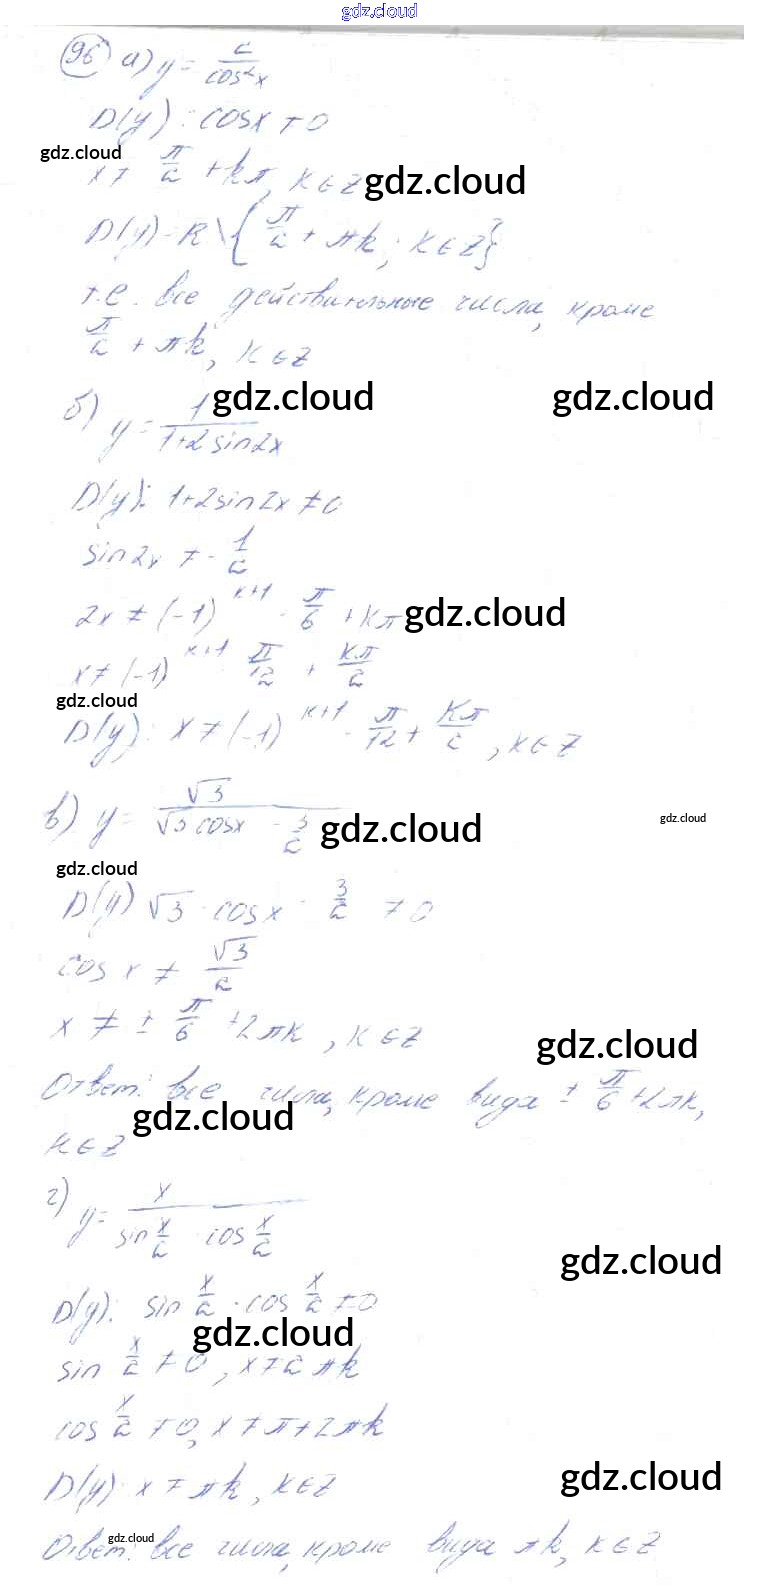 gdz.cloud
96 а) y = 2/cos²x
D(y): cosx ≠ 0
gdz.cloud
x ≠ π/2 + kπ, k ∈ Z gdz.cloud
D(y) = R \ {π/2 + πk; k ∈ Z}
т.е. все действительные числа, кроме
π/2 + πk, k ∈ Z
gdz.cloud gdz.cloud
б) y = 1/(1+2sin2x)
D(y): 1+2sin2x ≠ 0
sin2x ≠ -1/2
2x ≠ (-1)^(k+1) · π/6 + kπ gdz.cloud
x ≠ (-1)^(k+1) π/12 + kπ/2
gdz.cloud
D(y): x ≠ (-1)^(k+1) · π/12 + kπ/2, k ∈ Z
в) y = √3/(√3 cosx - 3/2) gdz.cloud gdz.cloud
gdz.cloud
D(y) √3 · cosx - 3/2 ≠ 0
cos x ≠ √3/2
x ≠ ± π/6 + 2πk, k ∈ Z gdz.cloud
Ответ: все числа, кроме вида ± π/6 + 2πk,
gdz.cloud
k ∈ Z
г) y = x/(sin x/2 · cos x/2)
gdz.cloud
D(y): sin x/2 · cos x/2 ≠ 0
gdz.cloud
sin x/2 ≠ 0, x ≠ 2πk
cos x/2 ≠ 0, x ≠ π + 2πk
D(y): x ≠ πk, k ∈ Z gdz.cloud
gdz.cloud
Ответ: все числа, кроме вида πk, k ∈ Z